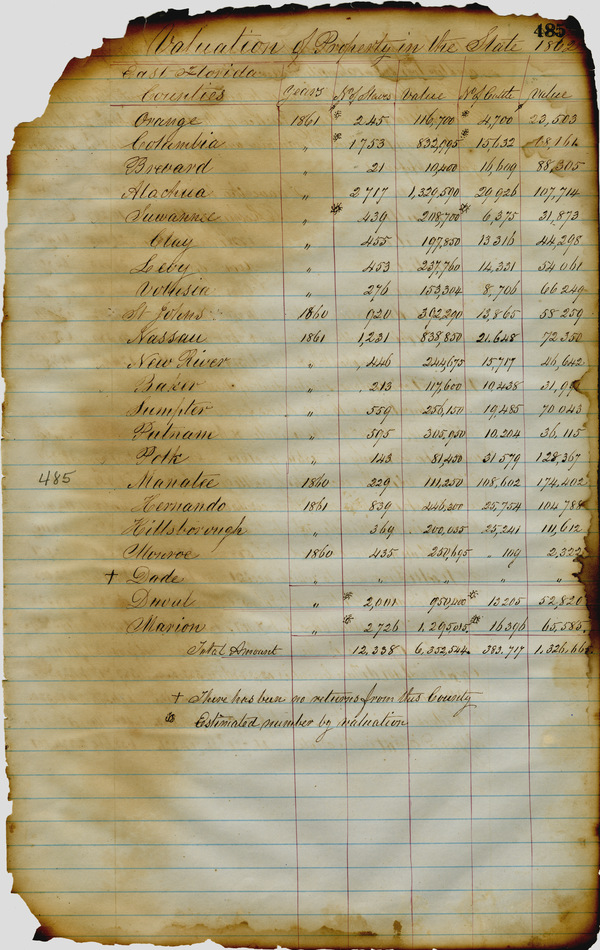 485
Valuation of Property in the State 1862
East Florida
Counties Years No of Slaves Value No of Cattle Value
Orange 1861 * 245 116,700 * 4,700 23,503
Columbia " * 1753 832,995 * 15632
Brevard " 21 10,400 16,609 88,305
Alachua " 2717 1,329,590 29,926 107,714
Suwannee " * 439 208,700 * 6,375 31,873
Clay " 455 197,850 13,316 44,298
Levy " 453 237,760 14,331 54,061
Volusia " 276 153,304 8,706 66,240
St Johns 1860 920 392,200 13,865 58,259
Nassau 1861 1,231 838,850 21,648 72,350
New River " 446 244,675 15,717 46,642
Baker " 213 117,600 10,438
Sumpter " 559 256,150 19,485 70,043
Putnam " 595 305,950 10,204 36,115
Polk " 143 81,450 31,579 128,367
485
Manatee 1860 229 111,250 108,602 174,402
Hernando 1861 839 446,200 25,754 104,788
Hillsborough " 369 200,035 25,241 111,612
Monroe 1860 435 250,695 109 2,322
† Dade " " " " "
Duval " * 2,001 950,400 * 13205 52,820
Marion " * 2,726 1,295,035 * 16396 65,585
Total Amount 12,338 6,352,544 383,717
† There has been no returns from this County
* Estimated number by valuation